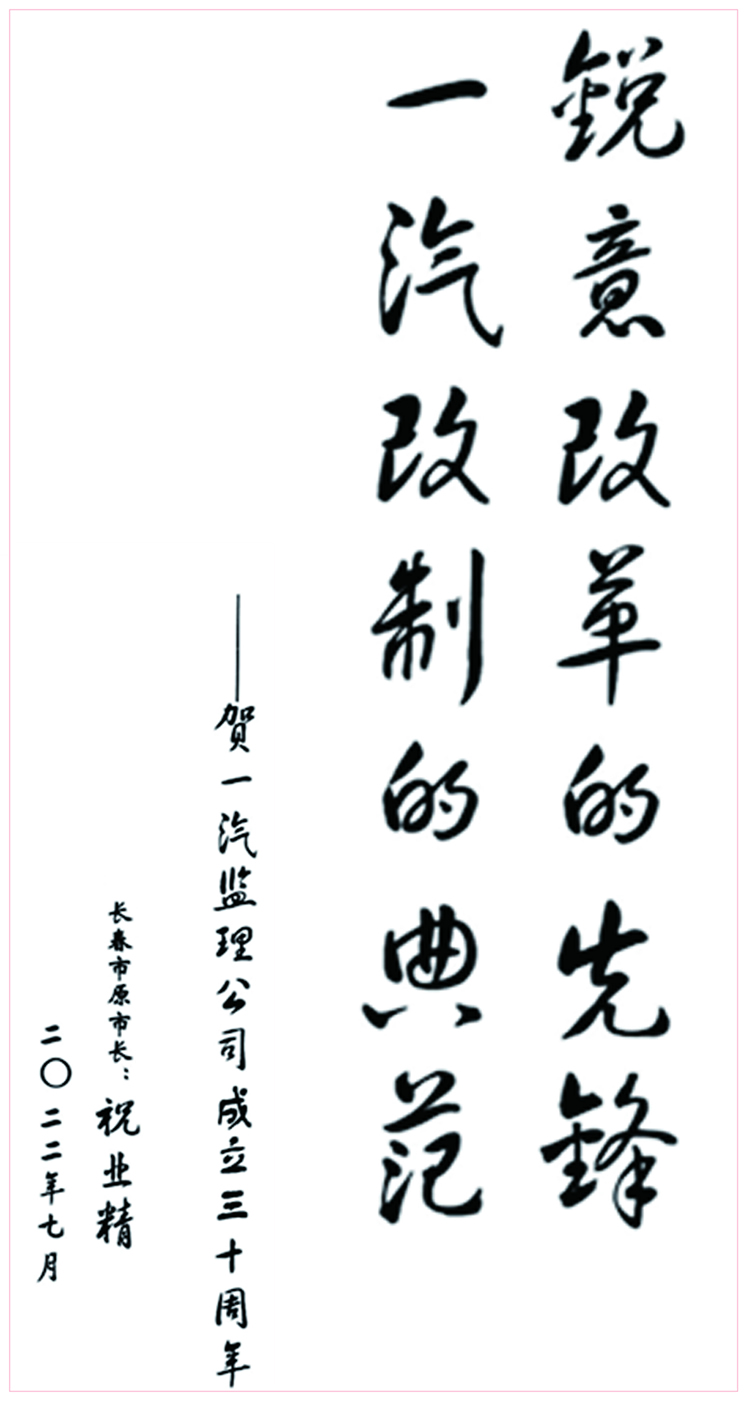 銳意改革的先鋒
一汽改制的典范
——贺一汽监理公司成立三十周年
长春市原市长：祝业精
二〇二二年七月